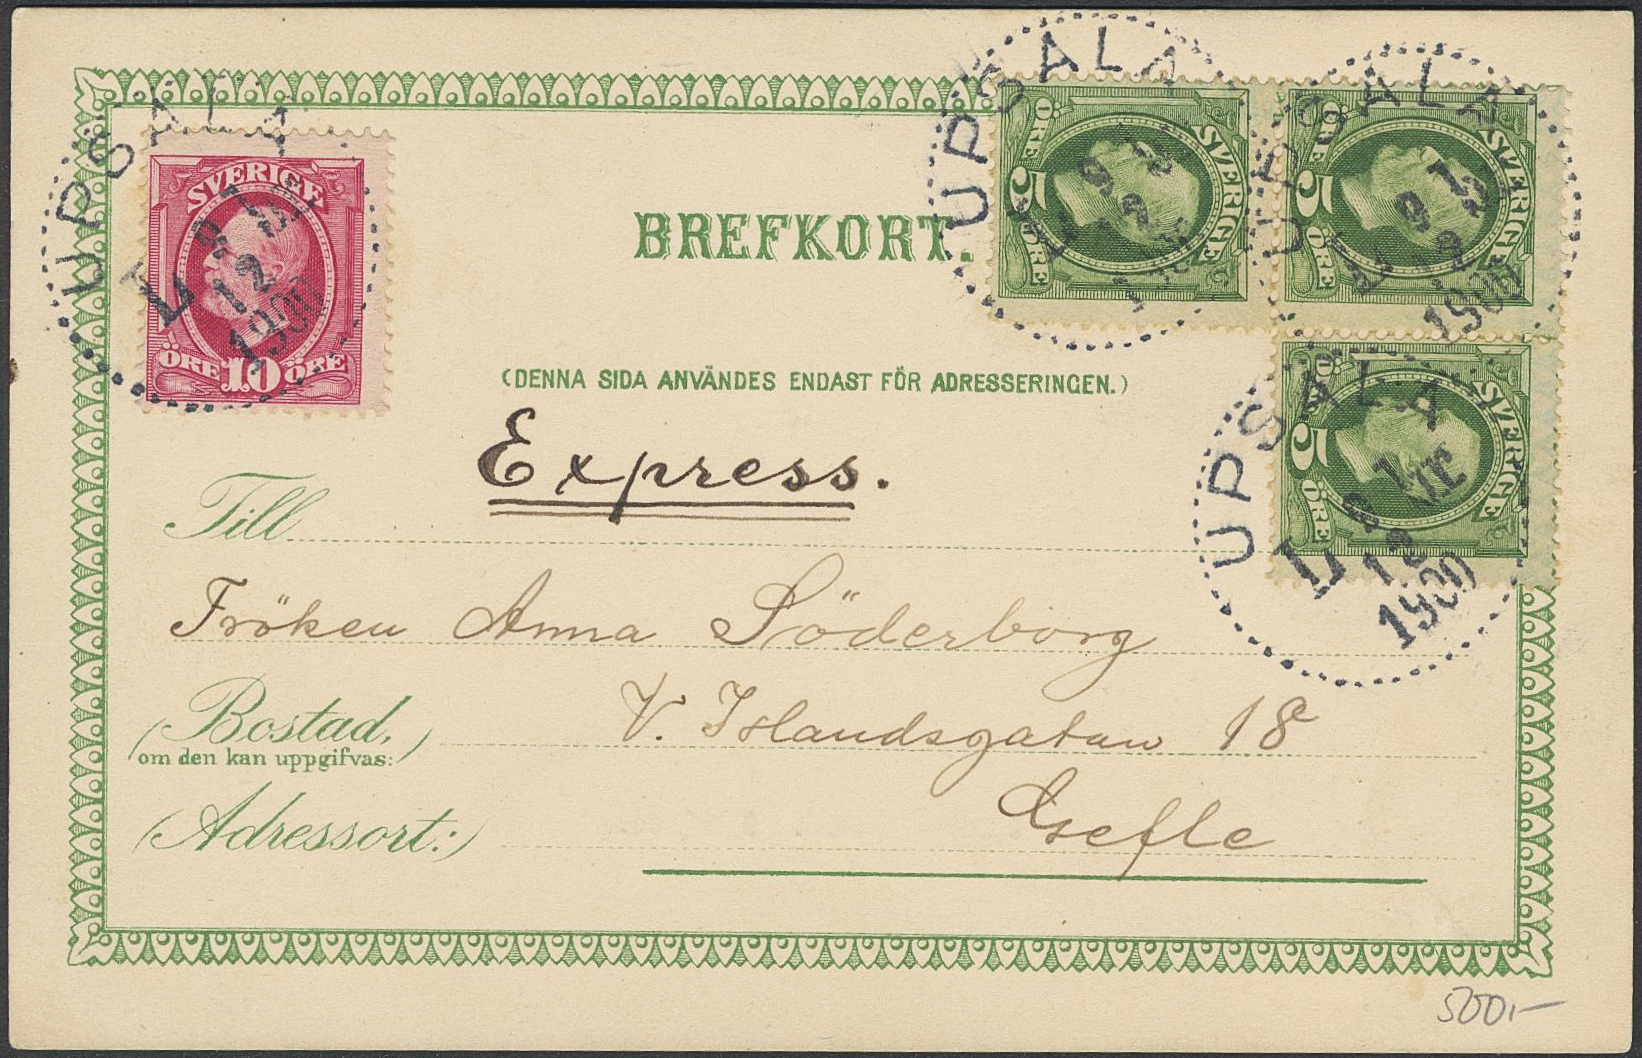 UPSALA
L
9
12
1900
SVERIGE
ÖRE 10 ÖRE
UPSALA
ÖRE 5 ÖRE
SVERIGE
UPSALA
1900
ÖRE 5 ÖRE
SVERIGE
BREFKORT.
(DENNA SIDA ANVÄNDES ENDAST FÖR ADRESSERINGEN.)
UPSALA
12
1900
5 ÖRE
SVERIGE
Express.
Till
Fröken Anna Söderborg
(Bostad,)
om den kan uppgifvas:
V. Islandsgatan 18
(Adressort:)
Gefle
500,-